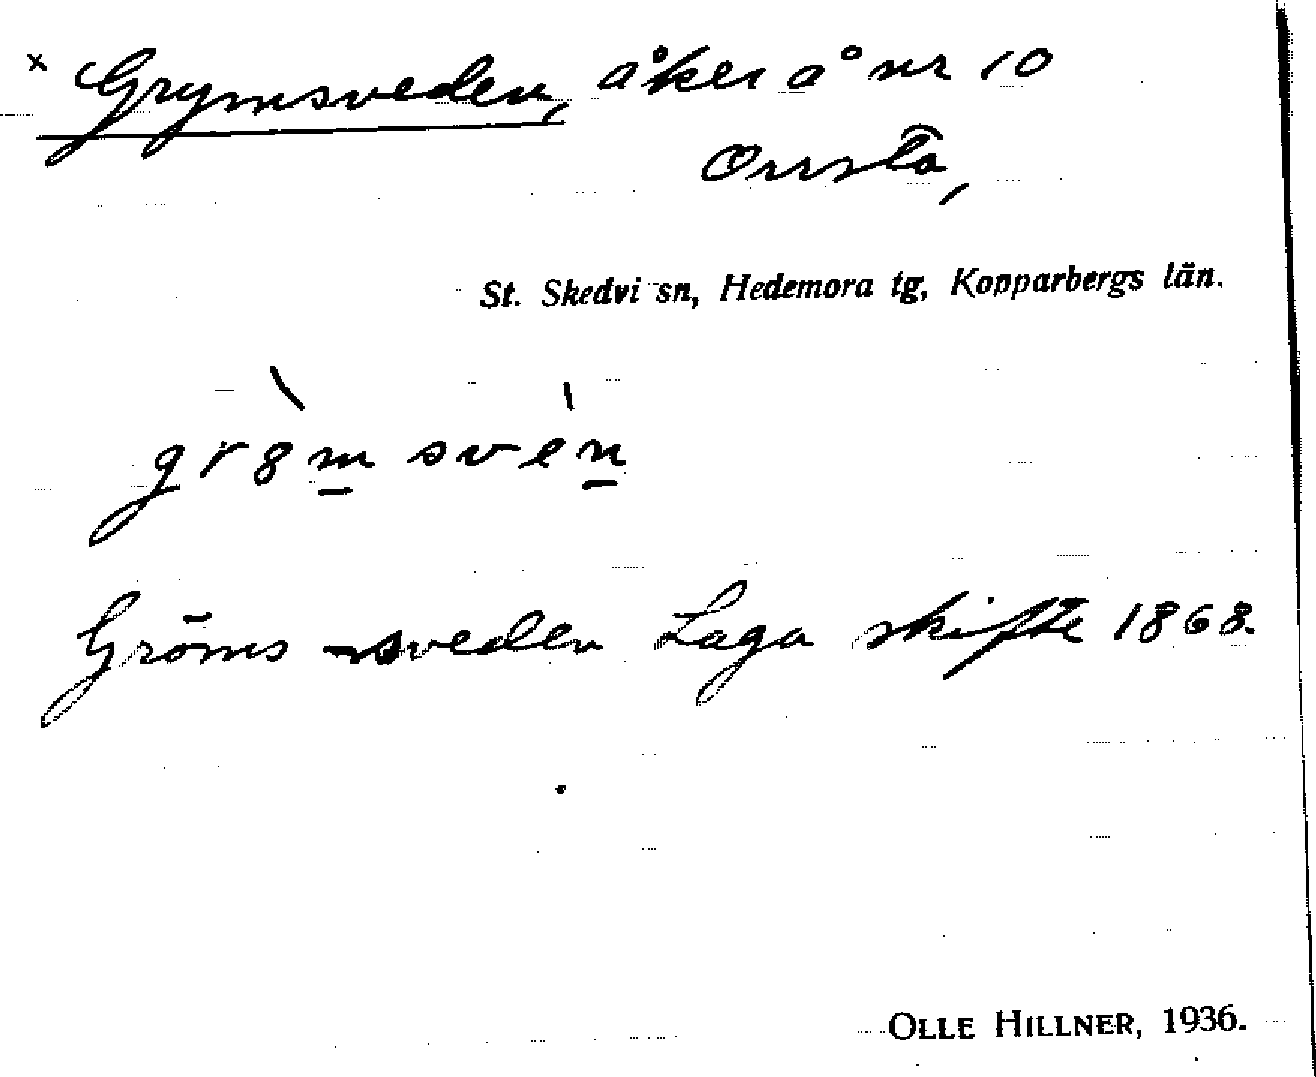 x Grymsveden, åker å nr 10
Orrsta,
St. Skedvi sn, Hedemora tg, Kopparbergs län.
gr8̀m̲ svèn̲
Gröms-sveden Laga skifte 1868.
OLLE HILLNER, 1936.